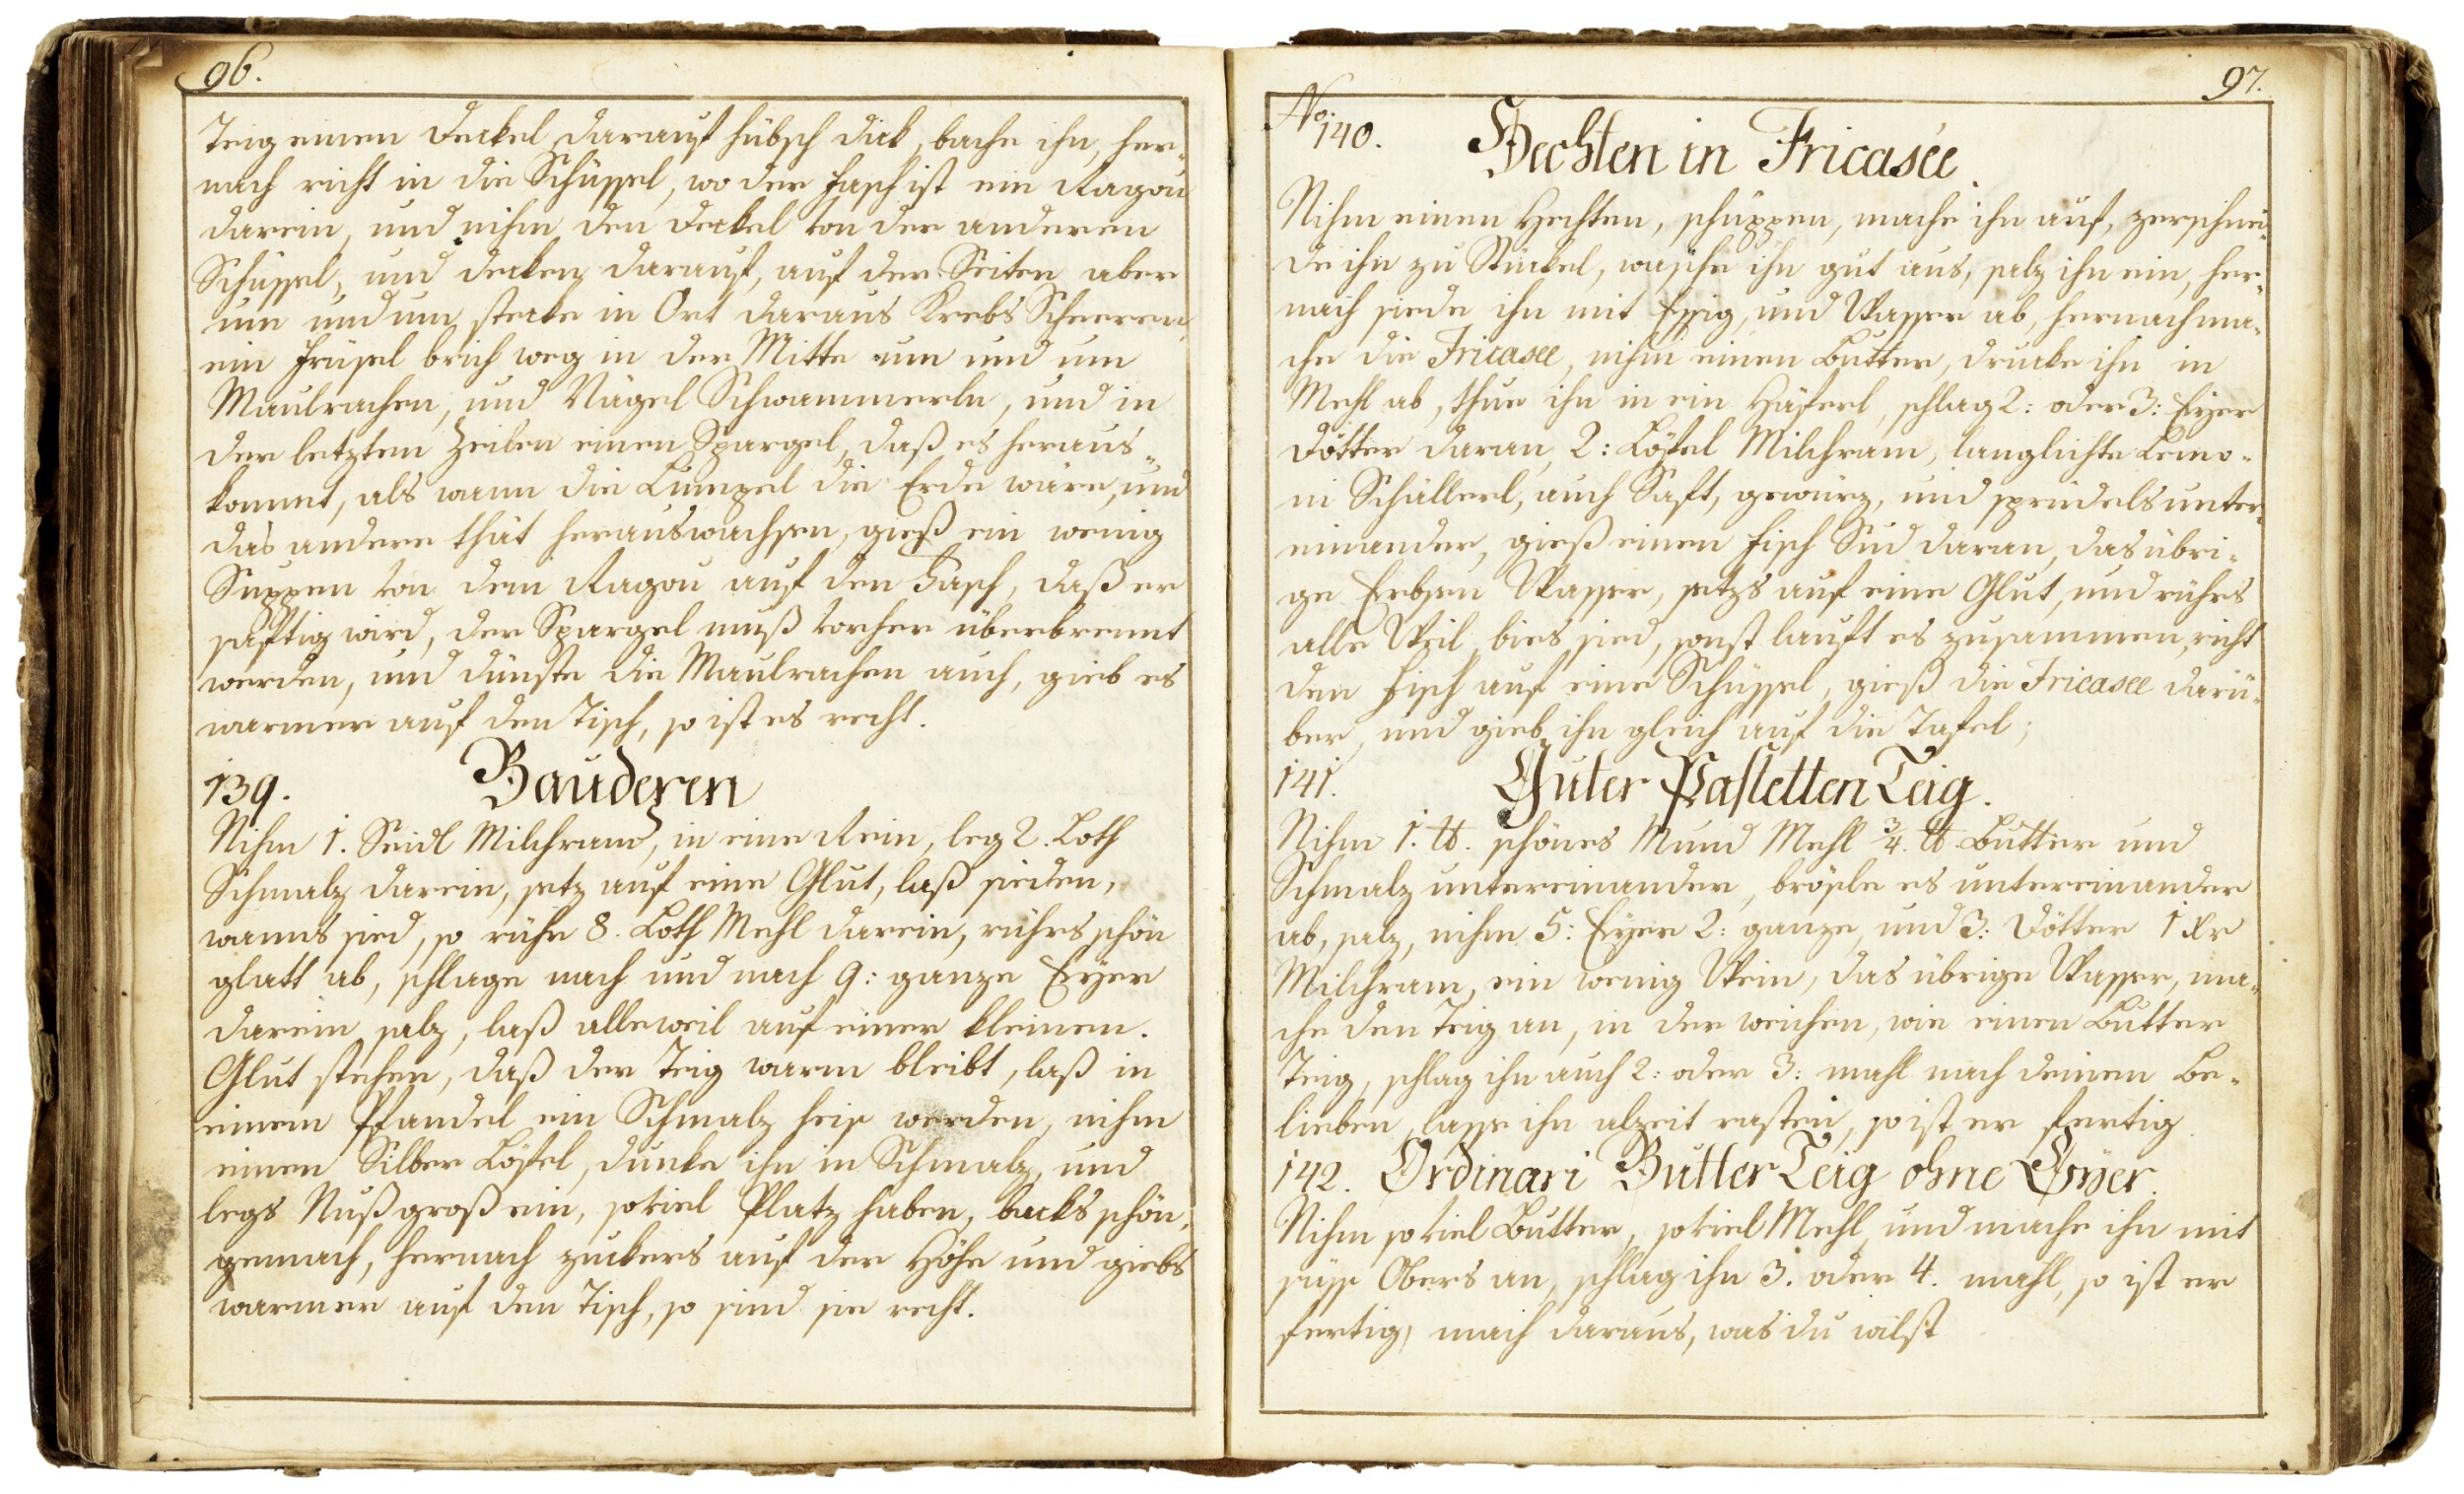 96.
Teig einen Deckel darauf hübsch dick, bache ihn, her„
nach richt in die Schüssel, wo der Fasch ist ein Ragou
darein, und nihm den Deckel von der anderen
Schüssel, und decken darauf, auf der Seiten aber
um und um stecke in Ort daraus Krebs Scheeren,
ein brich weg in der Mitte um und um
Maulrachen, und Nägel Schwammerln, und in
der letzten Zeilen einen Spargel, daß es heraus„
kommt, als wann die die Erde wäre, und
das andere thät herauswachsen, gieß ein wenig
Suppen von dem Ragou auf den Fasch, daß er
saftig wird, der Spargel muß vorher überbrennt
werden, und dünste die Maulrachen auch, gieb es
warmer auf den Tisch, so ist es recht.
139. Bauderen
Nihm 1. Seidl Milchram, in eine Rein, leg 2. Loth
Schmalz darein, setz auf eine Glut, laß sieden,
wanns sied, so rühr 8. Loth Mehl darein, rührs schön
glatt ab, schlage nach und nach 9: ganze Eyer
darein, salz, laß alleweil auf einer kleinen.
Glut stehen, daß der Teig warm bleibt, laß in
einem Pfandel ein Schmalz heis werden, nihm
einen Silber Löfel, dunke ihn in Schmalz, und
legs Nuß groß ein, soviel Platz haben, backs schön,
gemach, hernach zuckers auf der Höhe und giebs
warmer auf den Tisch, so sind sie recht.
97.
No: 140. Hechten in Fricasée
Nihm einen Hechten, schuppen, mache ihn auf, zerschnei„
de ihn zu Stückel, wasche ihn gut aus, salz ihn ein, her„
nach siede ihn mit Essig, und Wasser ab, hernach ma„
che die Fricasee, nihm einen Butter, drucke ihn in
Mehl ab, thue ihn in ein Häferl, schlag 2: oder 3: Eyer
Dötter daran, 2: Löfel Milchram, langlichte Lemo„
ni Schällerl, auch Saft, gewürz, und sprudels unter„
einander, gieß einen Fisch Sud daran, das übri„
ge Erbsen Wasser, setzs auf eine Glut, und rührs
alle Weil, bies sied, sonst lauft es zusammen, richt
den Fisch auf eine Schüssel, gieß die Fricasee darü„
ber, und gieb ihn gleich auf die Tafel;
141. Guter Pastetten Teig.
Nihm 1. ℔. schönes Mund Mehl ¾. ℔. Butter und
Schmalz untereinander, brösle es untereinander
ab, salz, nihm 5: Eyer 2: ganze, und 3: Dötter 1 Xr
Milchram, ein wenig Wein, das übrige Wasser, ma„
che den Teig an, in der weichen, wie einen Butter
Teig, schlag ihn auch 2: oder 3: mahl nach deinem Be„
lieben, lasse ihn alzeit rasten, so ist er fertig
142. Ordinari Butter Teig ohne Eyer.
Nihm so viel Butter, so viel Mehl, und mache ihn mit
süss Obers an, schlag ihn 3. oder 4. mahl, so ist er
fertig, mach daraus, was du wilst